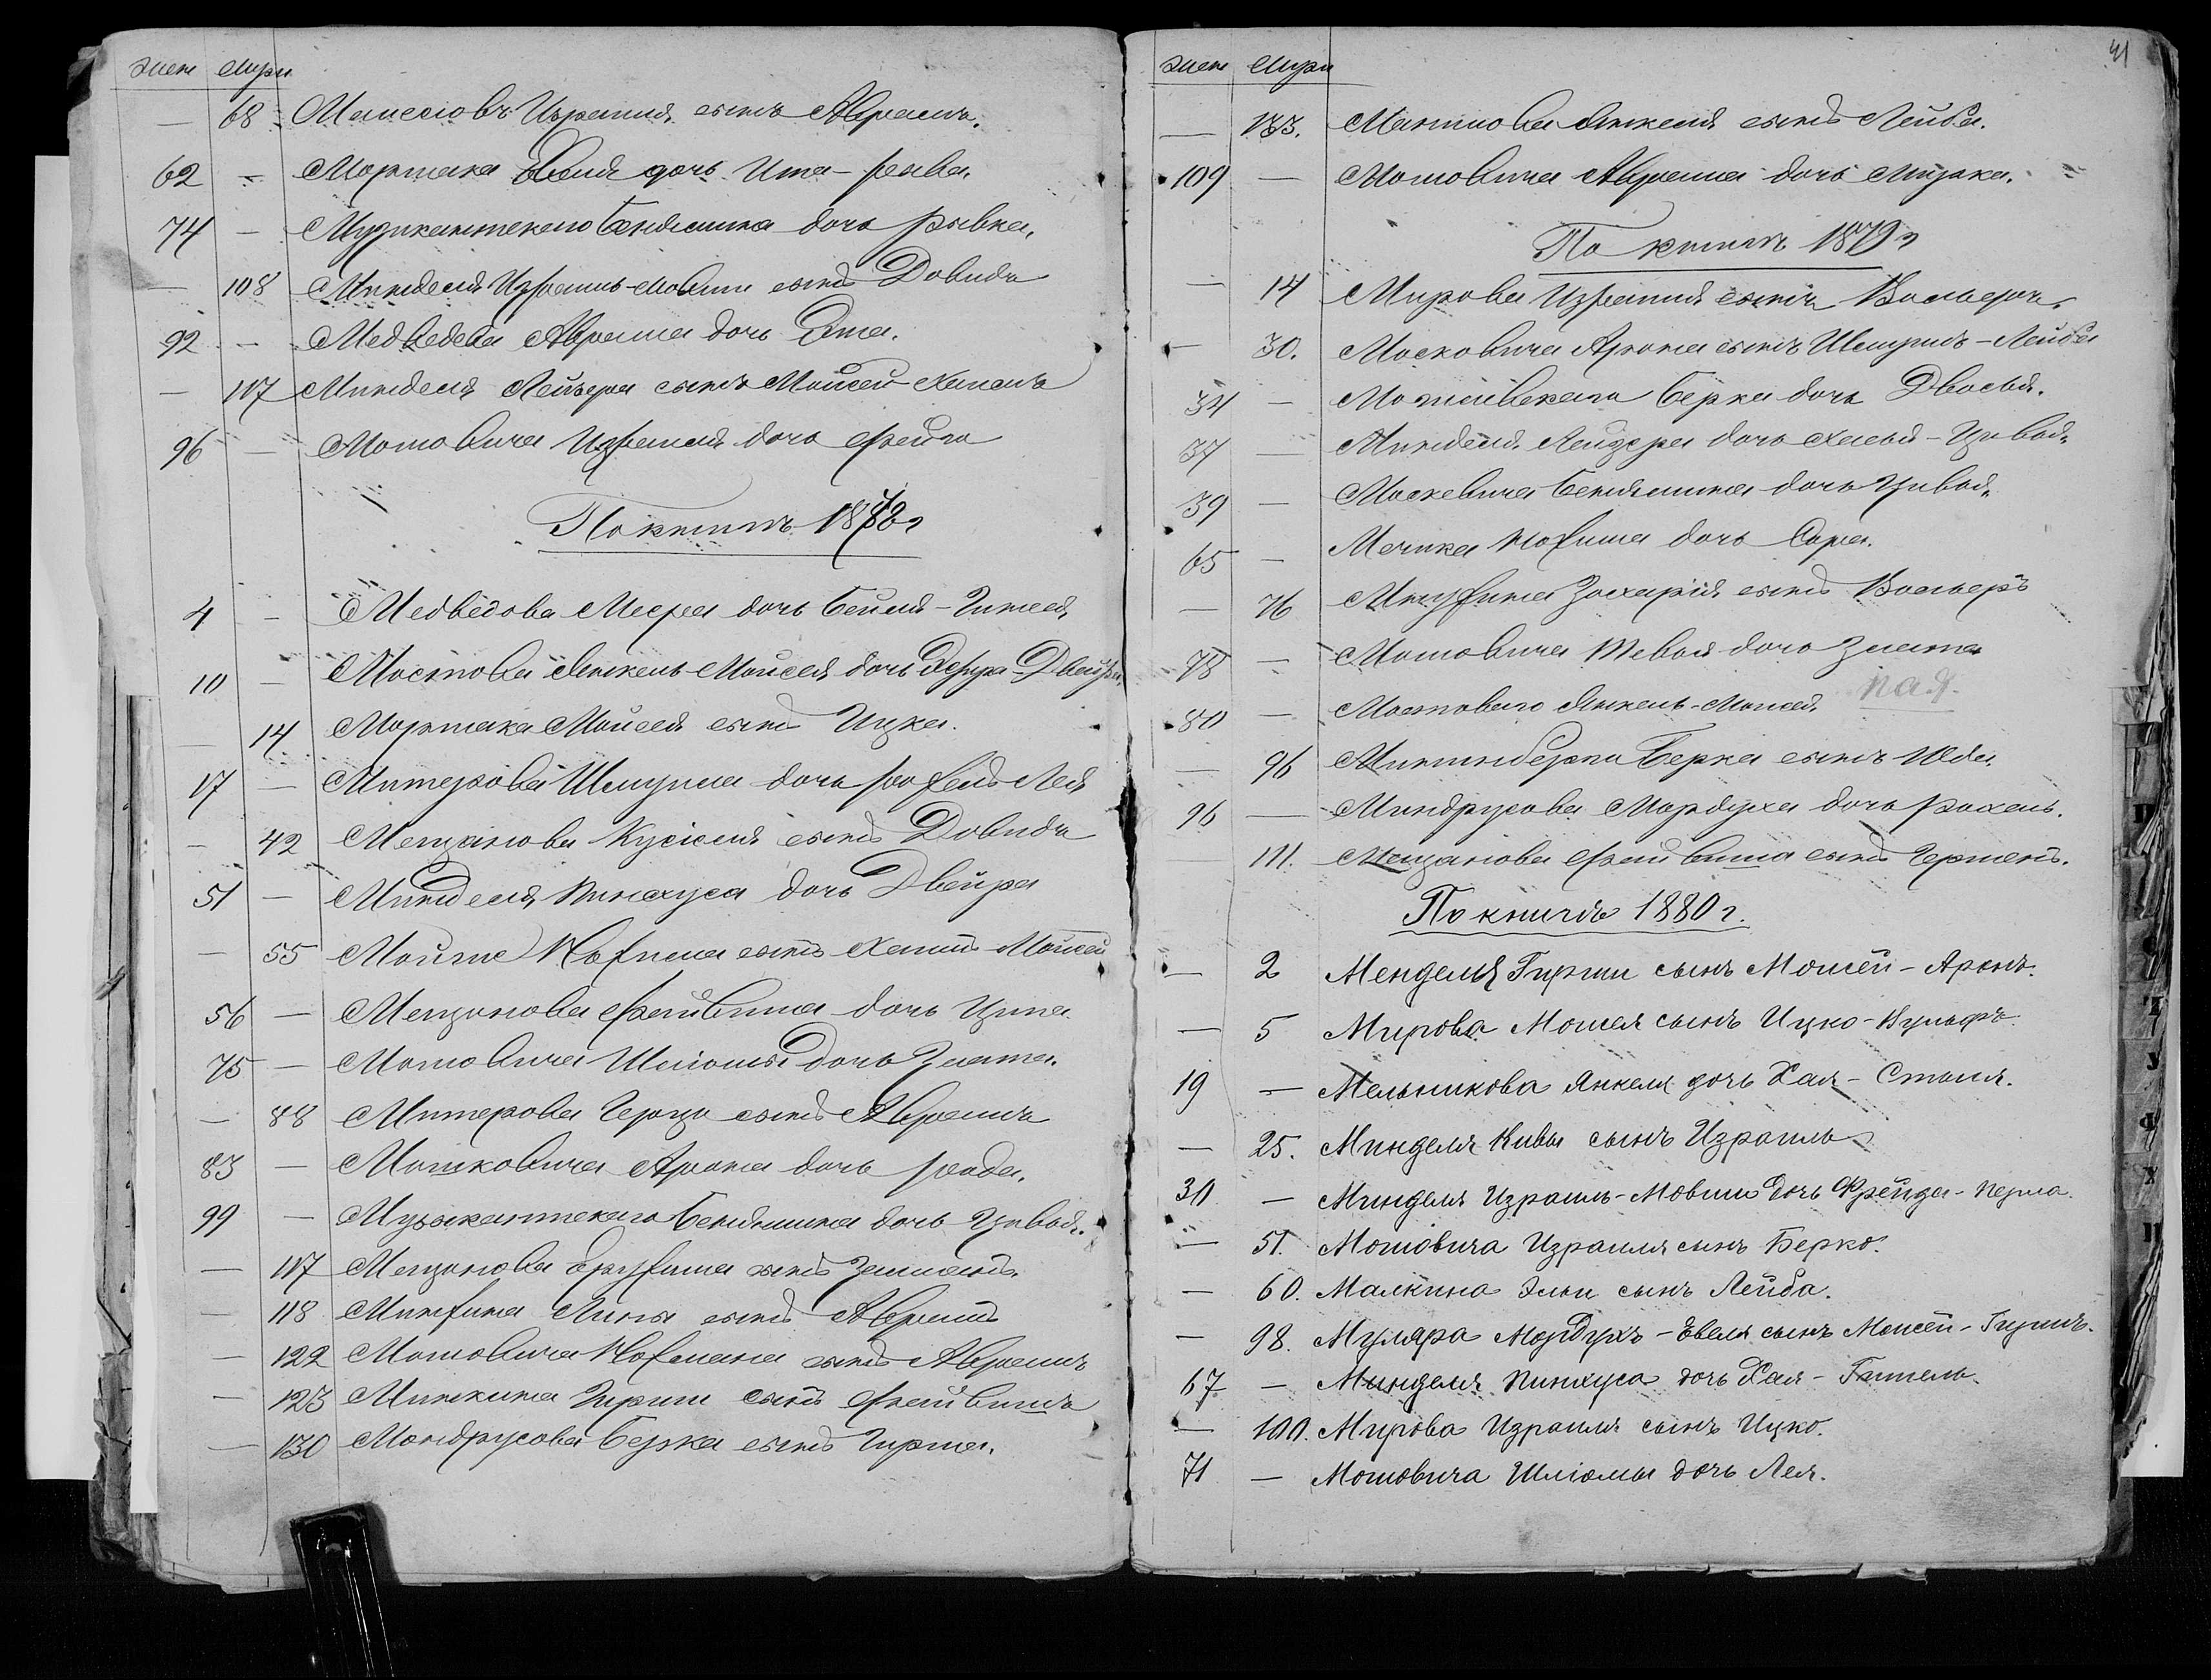 жен муж
— 68 Израиля сынъ Аврамъ.
62 — Мортака дочь Ита-Рыва.
74 — Музикантскаго Бенямина дочь Рывка.
— 108 Минделя Израиль-Мовши сынъ Довидъ
92 — Медведева Аврама дочь Эта.
— 117 Минделя Лейзера сынъ Мойсей-Хаимъ
96 — Мотовича Израиля дочь Фейга
По книгѣ 1878 г
4 — Медвѣдова Меера дочь Бейля-Гитля
10 — Мостова Янкель-Мойсея дочь Двейра
— 14 Мортака Мойсея сынъ Ицка.
17 — Митерова Шмуила дочь Лея
— 42 Мещанова Кусиеля сынъ Довидъ
51 — Минделя Пинхуса дочь Двейра
— 55 Нохима сынъ Хаимъ-Мойсей
56 — Мещанова Фейвиша дочь Ципа
75 — Мотовича Шліомы дочь Злата.
— 88 Митерова Герцо сынъ Аврамъ
83 — Мошковича Арона дочь Рода.
99 — Музыкантскаго Бенямина дочь Цивья.
— 117 Мещанова сынъ
— 118 сынъ Аврамъ
— 122 Мотовича Нохмана сынъ Аврамъ
— 123 Миткина Гирши сынъ Фейвишъ
— 130 Мандрусова Берка сынъ Гирша.
41
жен муж
— 133. Янкеля сынъ Лейба.
109 — Мотовича Аврама дочь Мирка.
По книгѣ 1879 г
— 14 Мирова Израиля сынъ Вольфъ.
— 30. Московича Арона сынъ Шмуилъ-Лейба
34 — Берка дочь Двося.
37 — Минделя Лейзера дочь Хася-Цивья.
39 — Москевича Бенямина дочь Цивья.
65 — Мечика Нохима дочь Сура.
— 76 Захарія сынъ Вольфъ
78 — Мотовича Тевья дочь Злата
80 — Мостового Янкель-Мойсея
— 96 Берка сынъ Юда.
96 — Миндрусова Мордуха дочь Рахель.
111. Мещанова Фейвиша сынъ Гершенъ.
По книгѣ 1880 г.
— 2 Менделя Гирши сынъ Мойсей-Аронъ.
— 5 Мирова Мойсея сынъ Ицко-Вульфъ.
19 — Мельникова Янкеля дочь Хая-Стыся.
— 25. Минделя Кивы сынъ Израиль
30 — Минделя Израиль-Мовши дочь Фрейда-Перла.
— 51. Мотовича Израиля сынъ Берко.
— 60. Малкина Эльи сынъ Лейба.
— 98. Муляра Мордухъ-Евеля сынъ Мойсей-Гиршъ.
67 — Минделя Пинхуса дочь Хая-Гитель.
— 100. Мирова Израиля сынъ Ицко.
71 — Мотовича Шліомы дочь Лея.